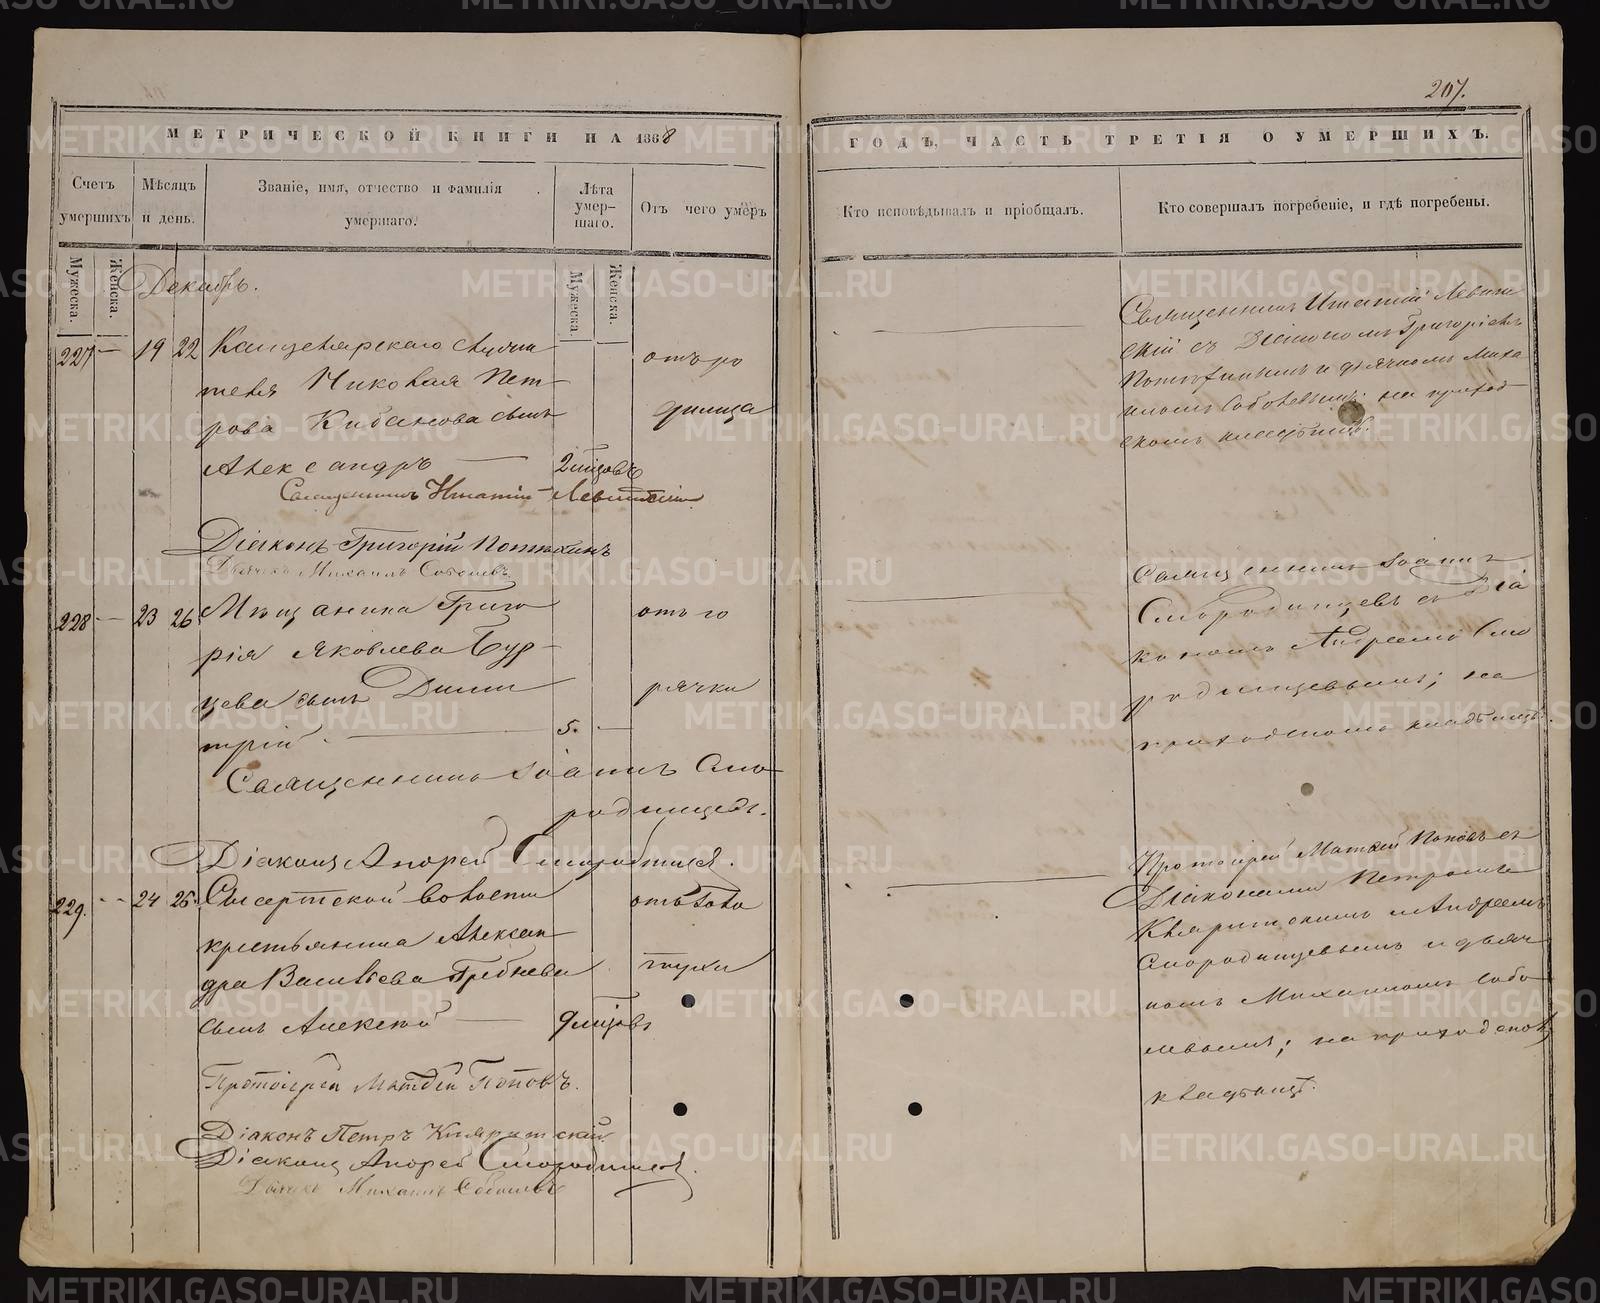 207.
МЕТРИЧЕСКОЙ КНИГИ НА 1868
ГОДЪ, ЧАСТЬ ТРЕТІЯ О УМЕРШИХЪ.
Счетъ умершихъ
Мѣсяцъ и день.
Званіе, имя, отчество и фамилія умершаго.
Лѣта умер-
шаго.
Отъ чего умеръ
Кто исповѣдывалъ и пріобщалъ.
Кто совершалъ погребеніе, и гдѣ погребены.
Мужеска.
Женска.
Мужеска.
Женска.
Декабрь.
227 — 19 22 Канцелярскаго служи
теля Николая Пет
рова Кибанова сынъ
Александръ — 2 мѣсцовъ
отъ ро
димца
Священникъ Игнатій Левит
скій съ Діакономъ Григоріемъ
Потѣхинымъ и дьячкомъ Миха
иломъ Соболевымъ; на приход
скомъ кладбищѣ.
Священникъ Игнатій Левитскій
Діаконъ Григорій Потѣхинъ
Дьячекъ Михаилъ Соболевъ
228 — 23 26 Мѣщанина Григо
рія Яковлева Бур
цева сынъ Дими
трій — 5. —
отъ го
рячки
Священникъ Іоаннъ
Смородинцевъ съ Діа
кономъ Андреемъ Смо
родинцевымъ; на
приходскомъ кладбищѣ.
Священникъ Іоаннъ Смо
родинцевъ.
Діаконъ Андрей Смородинцев.
229. — 24 26. Сысертской волости
крестьянина Алексан
дра Васильева Гребнева
сынъ Алексѣй — 9 мѣсцовъ
Протоіерей Матѳей Поповъ съ
Діаконами Петромъ
и Андреемъ
Смородинцевымъ и дьяч
комъ Михаиломъ Собо
левымъ; на приходском
кладбищѣ.
Протоіерей Матѳей Поповъ.
Діаконъ Петръ
Діаконъ Андрей Смородинцев.
Дьячекъ Михаилъ Соболевъ
METRIKI.GASO-URAL.RU